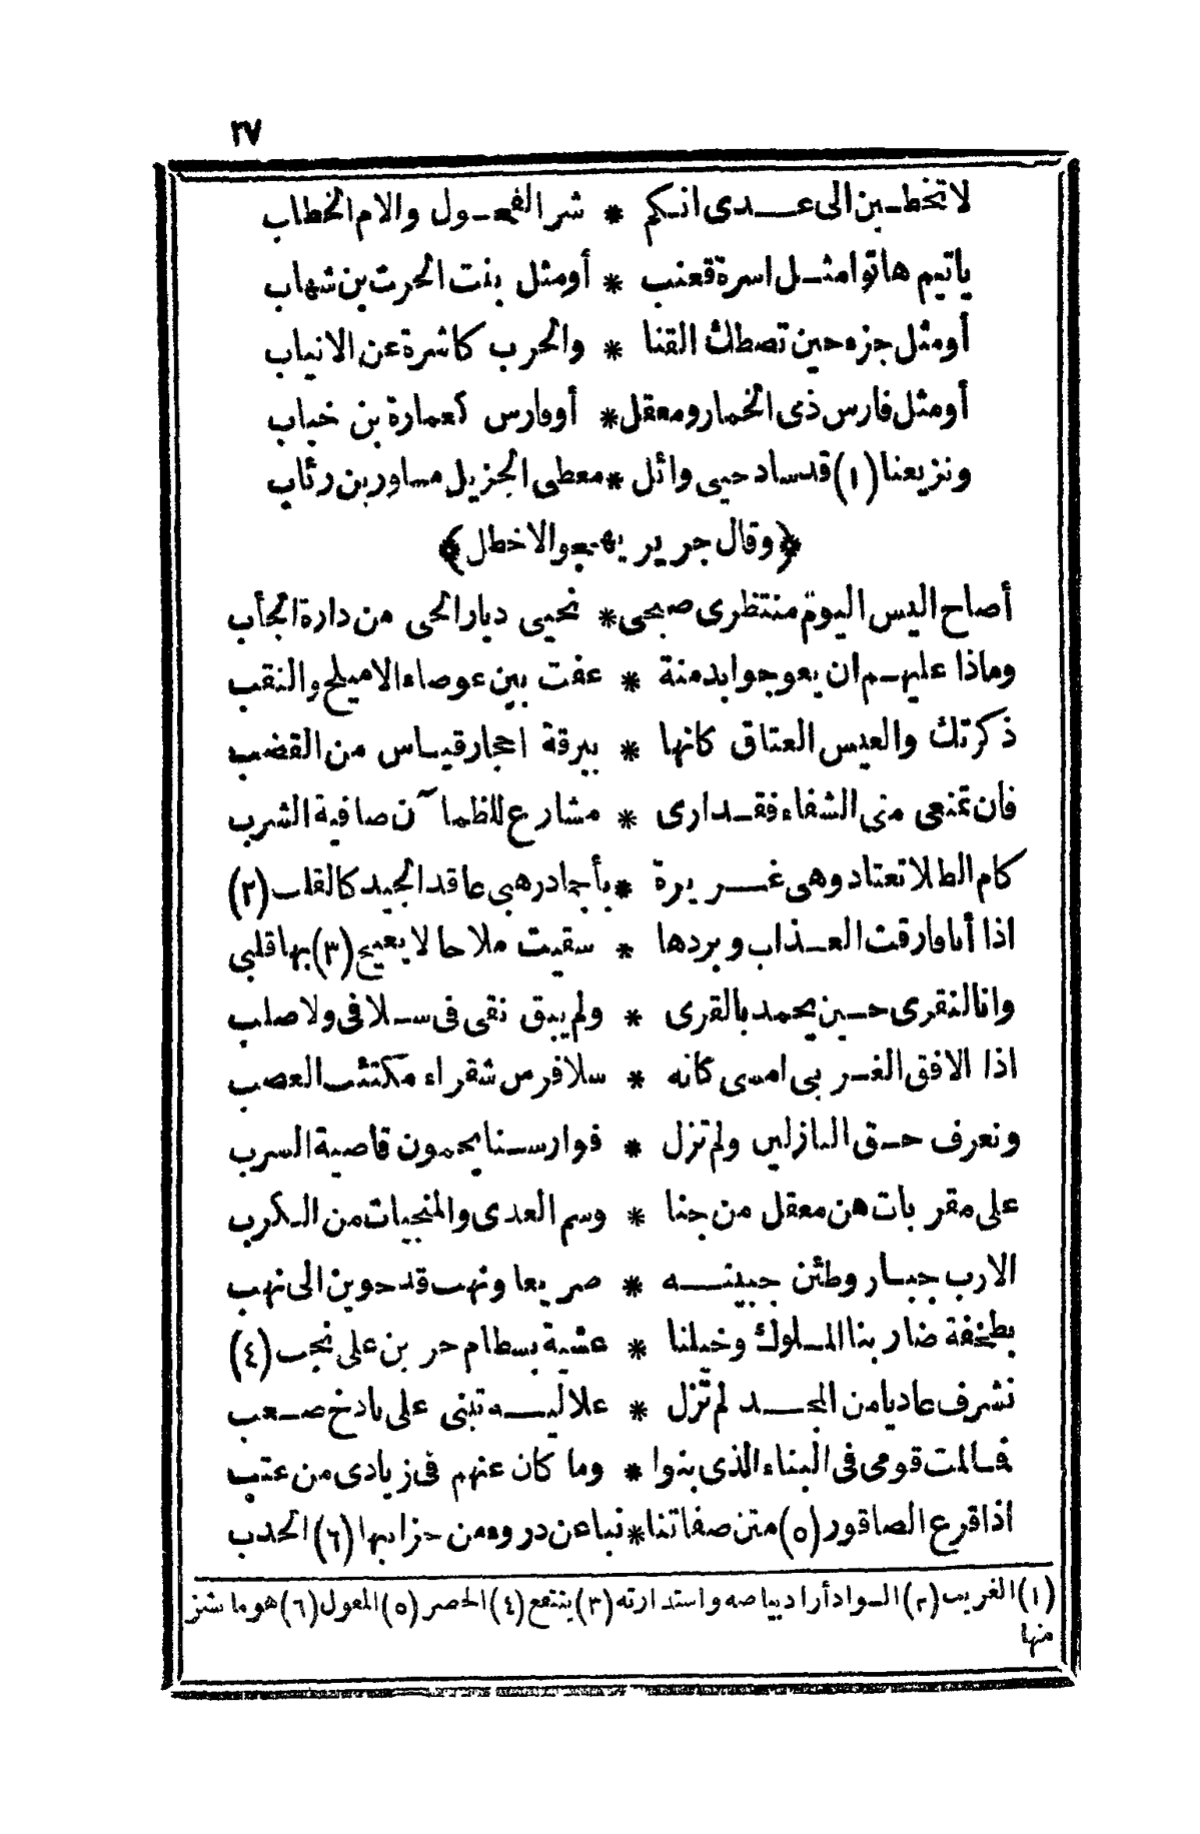 ٢٧
لا تخطبن الى عدى انكم * شر الفحول والام الخطاب
يا تيم هاتوا مثل اسرة قعنب * أو مثل بنت الحرث بن شهاب
أو مثل جزء حين تصطك القنا * والحرب كاشرة عن الانياب
أو مثل فارس ذى الخمار ومعقل * أو فارس كعمارة بن خباب
ونزيعنا (١) قد ساد حيى وائل * معطى الجزيل مساور بن رئاب
﴿وقال جرير يهجو الاخطل﴾
أصاح اليس اليوم منتظرى صحبى * نحيى ديار الحى من دارة الجأب
وماذا عليهم ان يعوجوا بدمنة * عفت بين عوصاء الاميلح والنقب
ذكرتك والعيس العتاق كانها * ببرقة احجار قياس من القضب
فان تمنعى منى الشفاء فقد ارى * مشارع للظمآن صافية الشرب
كام الطلا تعتاد وهى غريرة * بأجماد رهبى عاقد الجيد كالقلب (٢)
اذا أنا فارقت العذاب وبردها * سقيت ملاحا لا يعيج (٣) بها قلبى
وانا لنقرى حين يحمد بالقرى * ولم يبق نقى فى سلامى ولا صلب
اذا الافق الغربى امسى كانه * سلا فرس شقراء مكتئب العصب
ونعرف حق النازلين ولم تزل * فوارسنا يحمون قاصية السرب
على مقربات هن معقل من جنا * وسم العدى والمنجيات من الكرب
الا رب جبار وطئن جبينه * صريعا ونهب قد حوين الى نهب
بطخفة ضاربنا الملوك وخيلنا * عشية بسطام جرين على نحب (٤)
نشرف عاديا من المجد لم تزل * علاليه تبنى على باذخ صعب
فما لمت قومى فى البناء الذى بنوا * وما كان عنهم فى زيادى من عتب
اذا قرع الصاقور (٥) متن صفاتنا * نبا عن دروء من حزابيها (٦) الحدب
(١) الغريب (٢) السوار أراد بياضه واستدارته (٣) ينتفع (٤) الخصر (٥) المعول (٦) هو ما نشز
منها